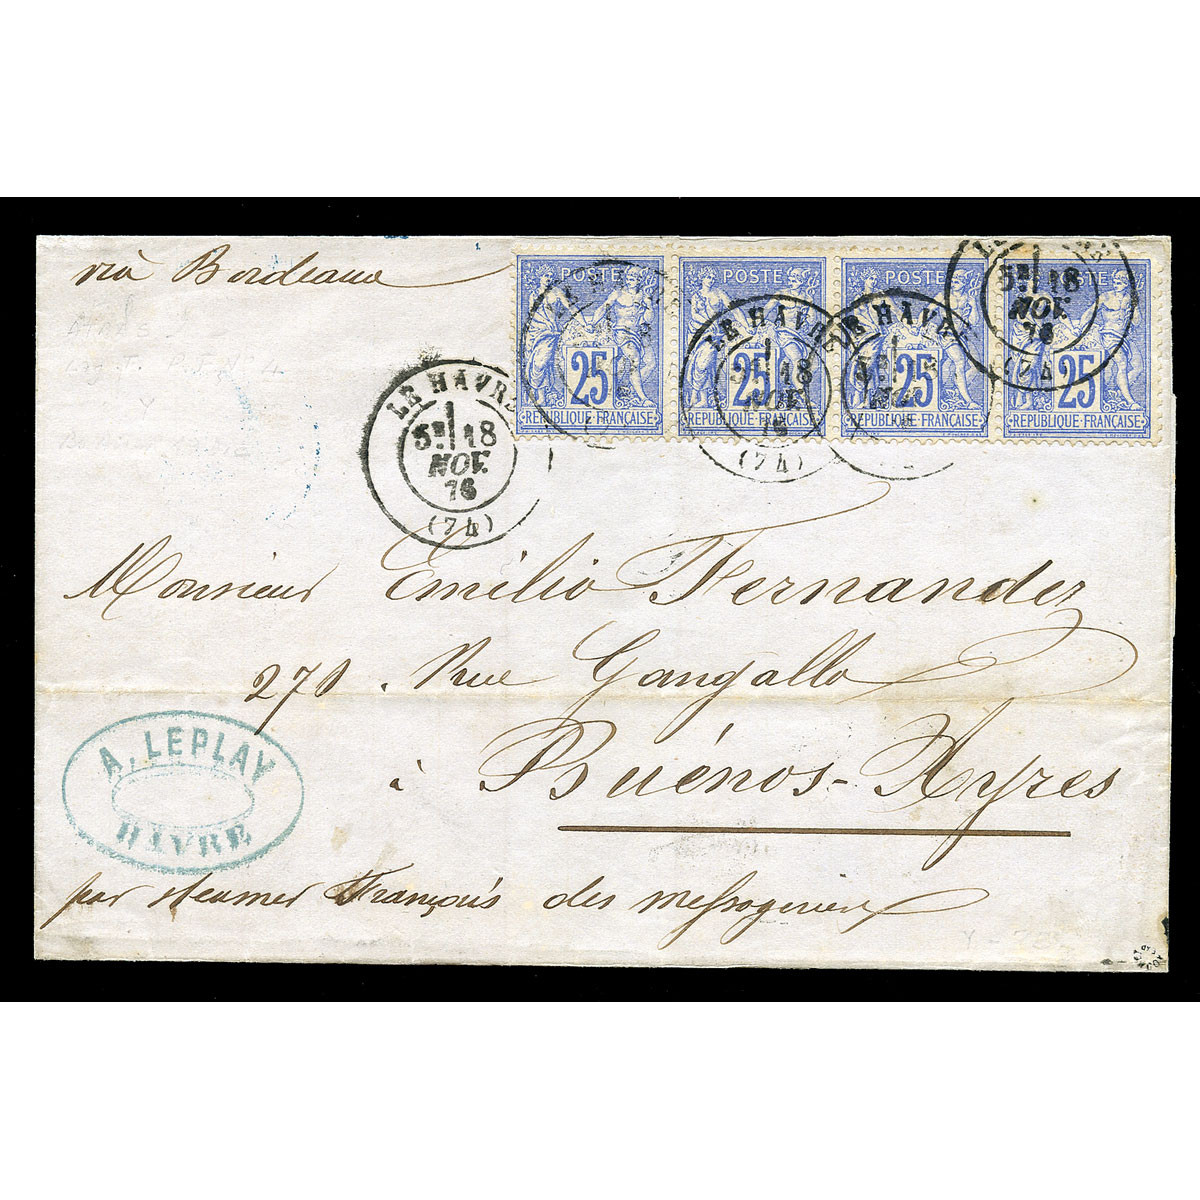 via Bordeaux
POSTE POSTE POSTE POSTE
25 25 25 25
REPUBLIQUE FRANÇAISE REPUBLIQUE FRANÇAISE REPUBLIQUE FRANÇAISE REPUBLIQUE FRANÇAISE
LE HAVRE
5E 18
NOV.
76
(74)
LE HAVRE
18
NOV.
76
(74)
LE HAVRE
5E 18
NOV.
76
(74)
Monsieur Emilio Fernandez
270. Rue Gangallo
à Buénos-Ayres
A. LEPLAY
HAVRE
par steamer Français des messageries